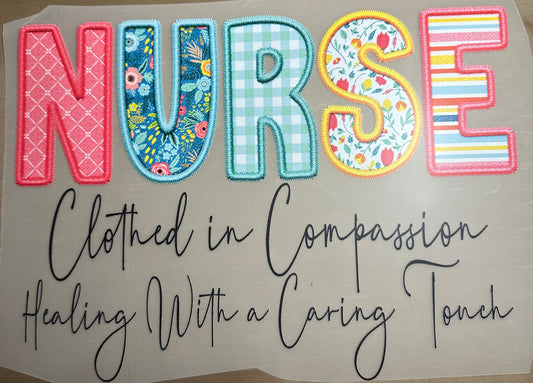 NURSE
Clothed in Compassion
Healing With a Caring Touch